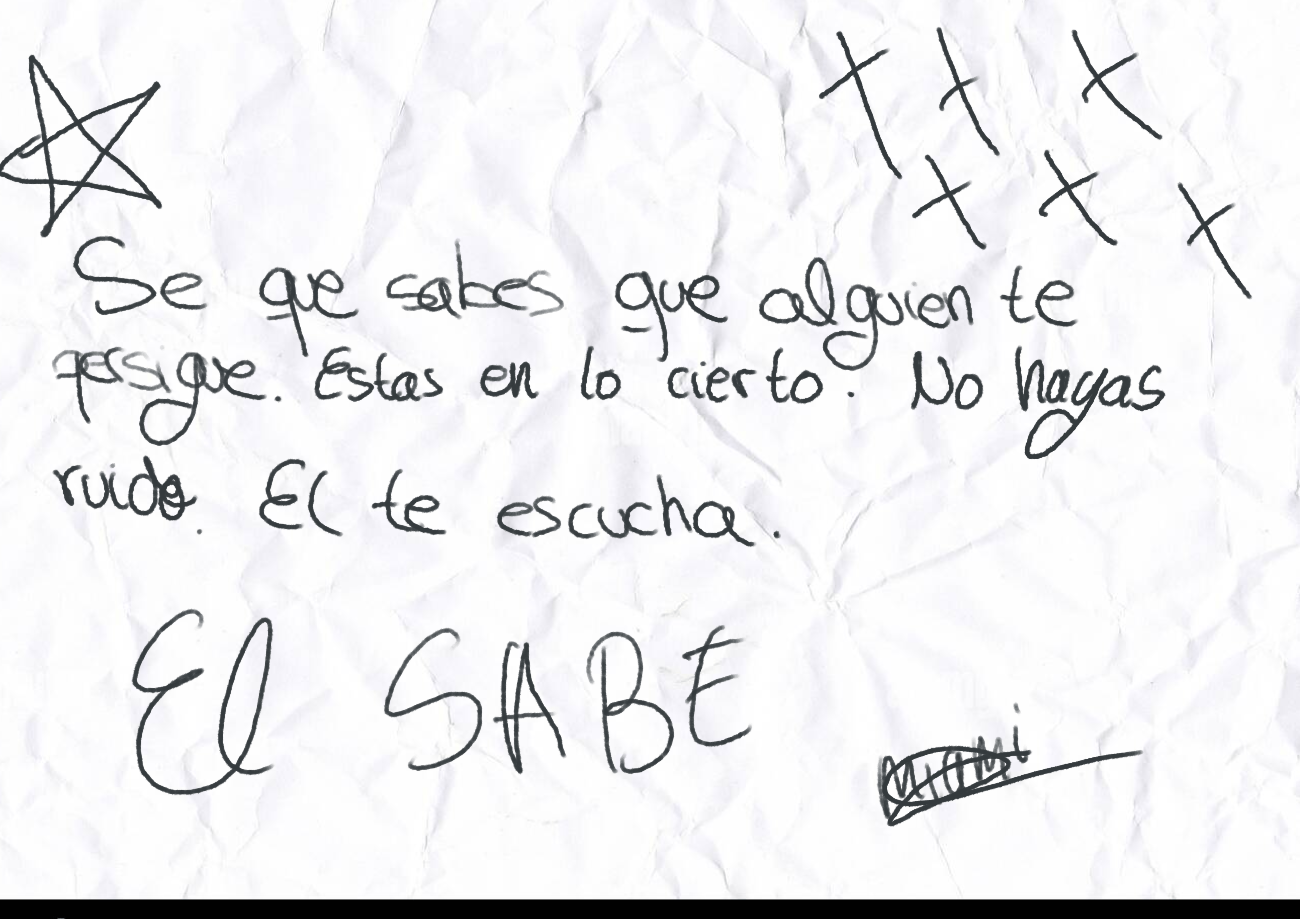 Se que sabes que alguien te
persigue. Estas en lo cierto. No hagas
ruido. El te escucha.
El SABE
Miami